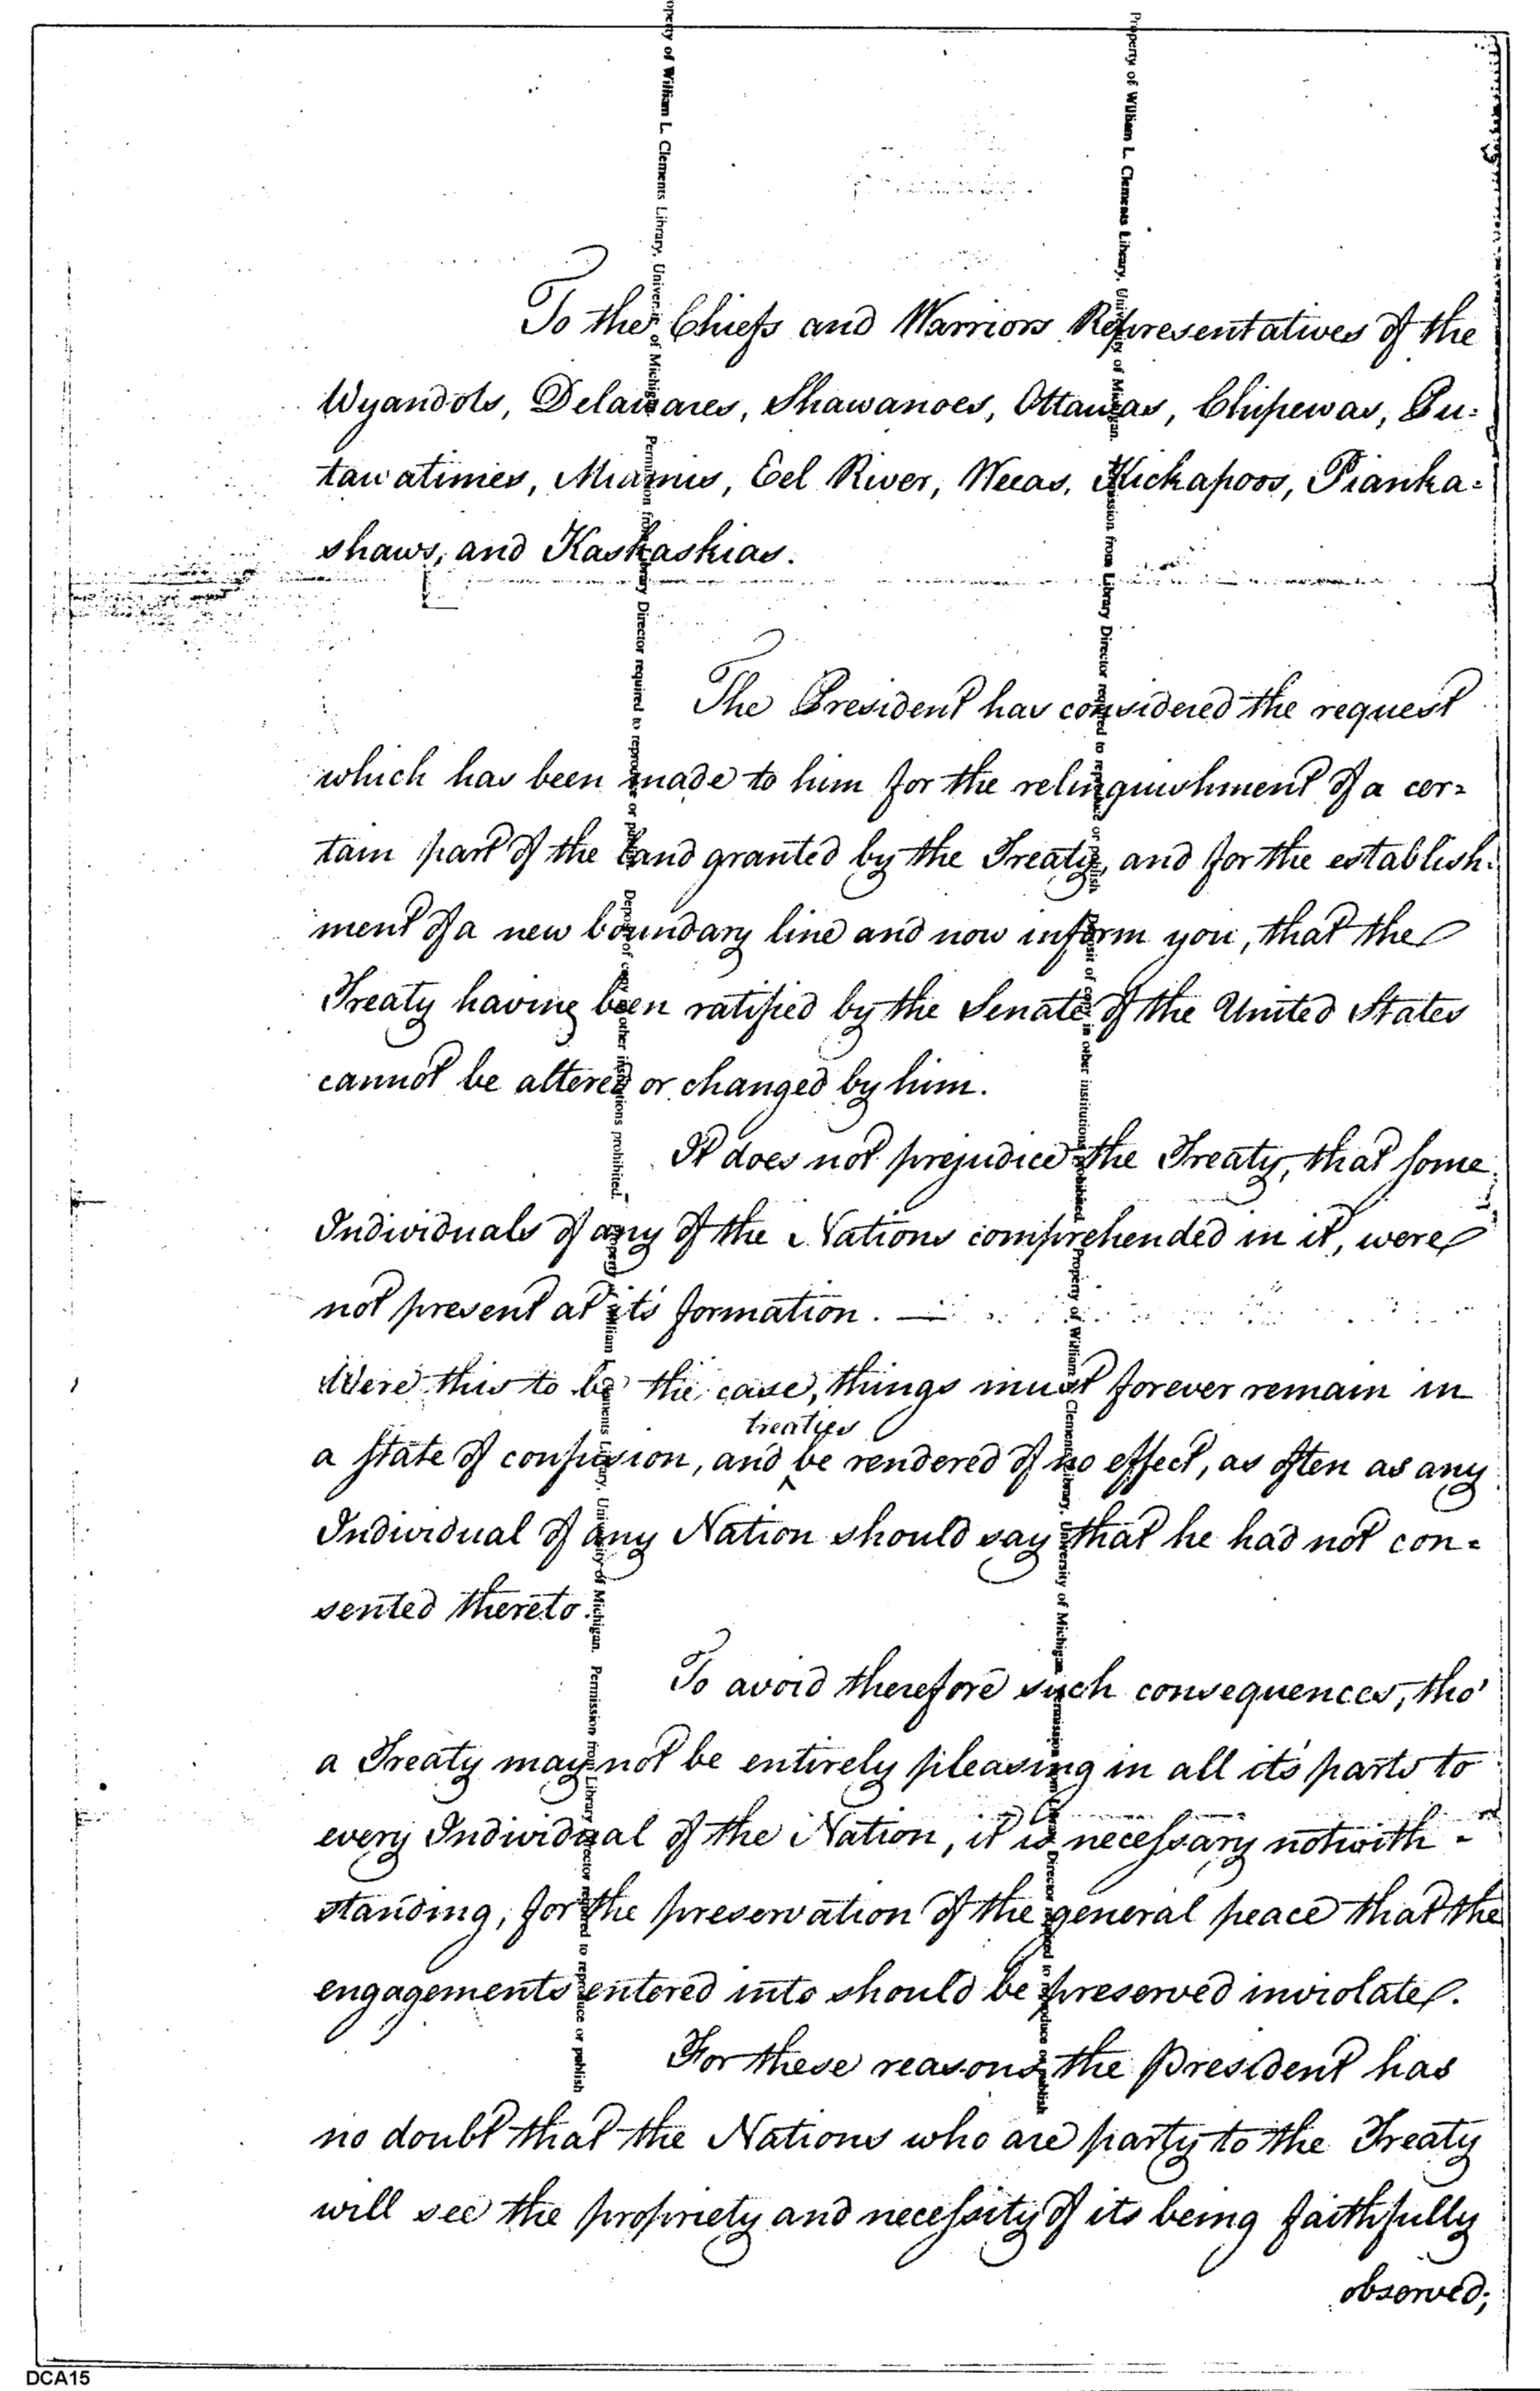 To the Chiefs and Warriors Representatives of the
Wyandots, Delawares, Shawanoes, Ottawas, Chipewas, Pu=
tawatimies, Miamis, Eel River, Weeas, Kickapoos, Pianka=
shaws, and Kaskaskias.
The President has considered the request
which has been made to him for the relinquishment of a cer=
tain part of the land granted by the Treaty, and for the establish=
ment of a new boundary line and now inform you, that the
Treaty having been ratified by the Senate of the United States
cannot be altered or changed by him.
It does not prejudice the Treaty, that some
Individuals of any of the Nations comprehended in it, were
not present at it's formation. —
Were this to be the case, things must forever remain in
treaties
a state of confusion, and ^ be rendered of no effect, as often as any
Individual of any Nation should say that he had not con=
sented thereto.
To avoid therefore such consequences, tho'
a Treaty may not be entirely pleasing in all it's parts to
every Individual of the Nation, it is necessary notwith -
standing, for the preservation of the general peace that the
engagements entered into should be preserved inviolate.
For these reasons the President has
no doubt that the Nations who are party to the Treaty
will see the propriety and necessity of its being faithfully
observed;
Property of William L. Clements Library, University of Michigan. Permission from Library Director required to reproduce or publish Deposit of copy in other institutions prohibited. Property of William L. Clements Library, University of Michigan. Permission from Library Director required to reproduce or publish
Property of William L. Clements Library, University of Michigan. Permission from Library Director required to reproduce or publish Deposit of copy in other institutions prohibited. Property of William L. Clements Library, University of Michigan. Permission from Library Director required to reproduce or publish
DCA15